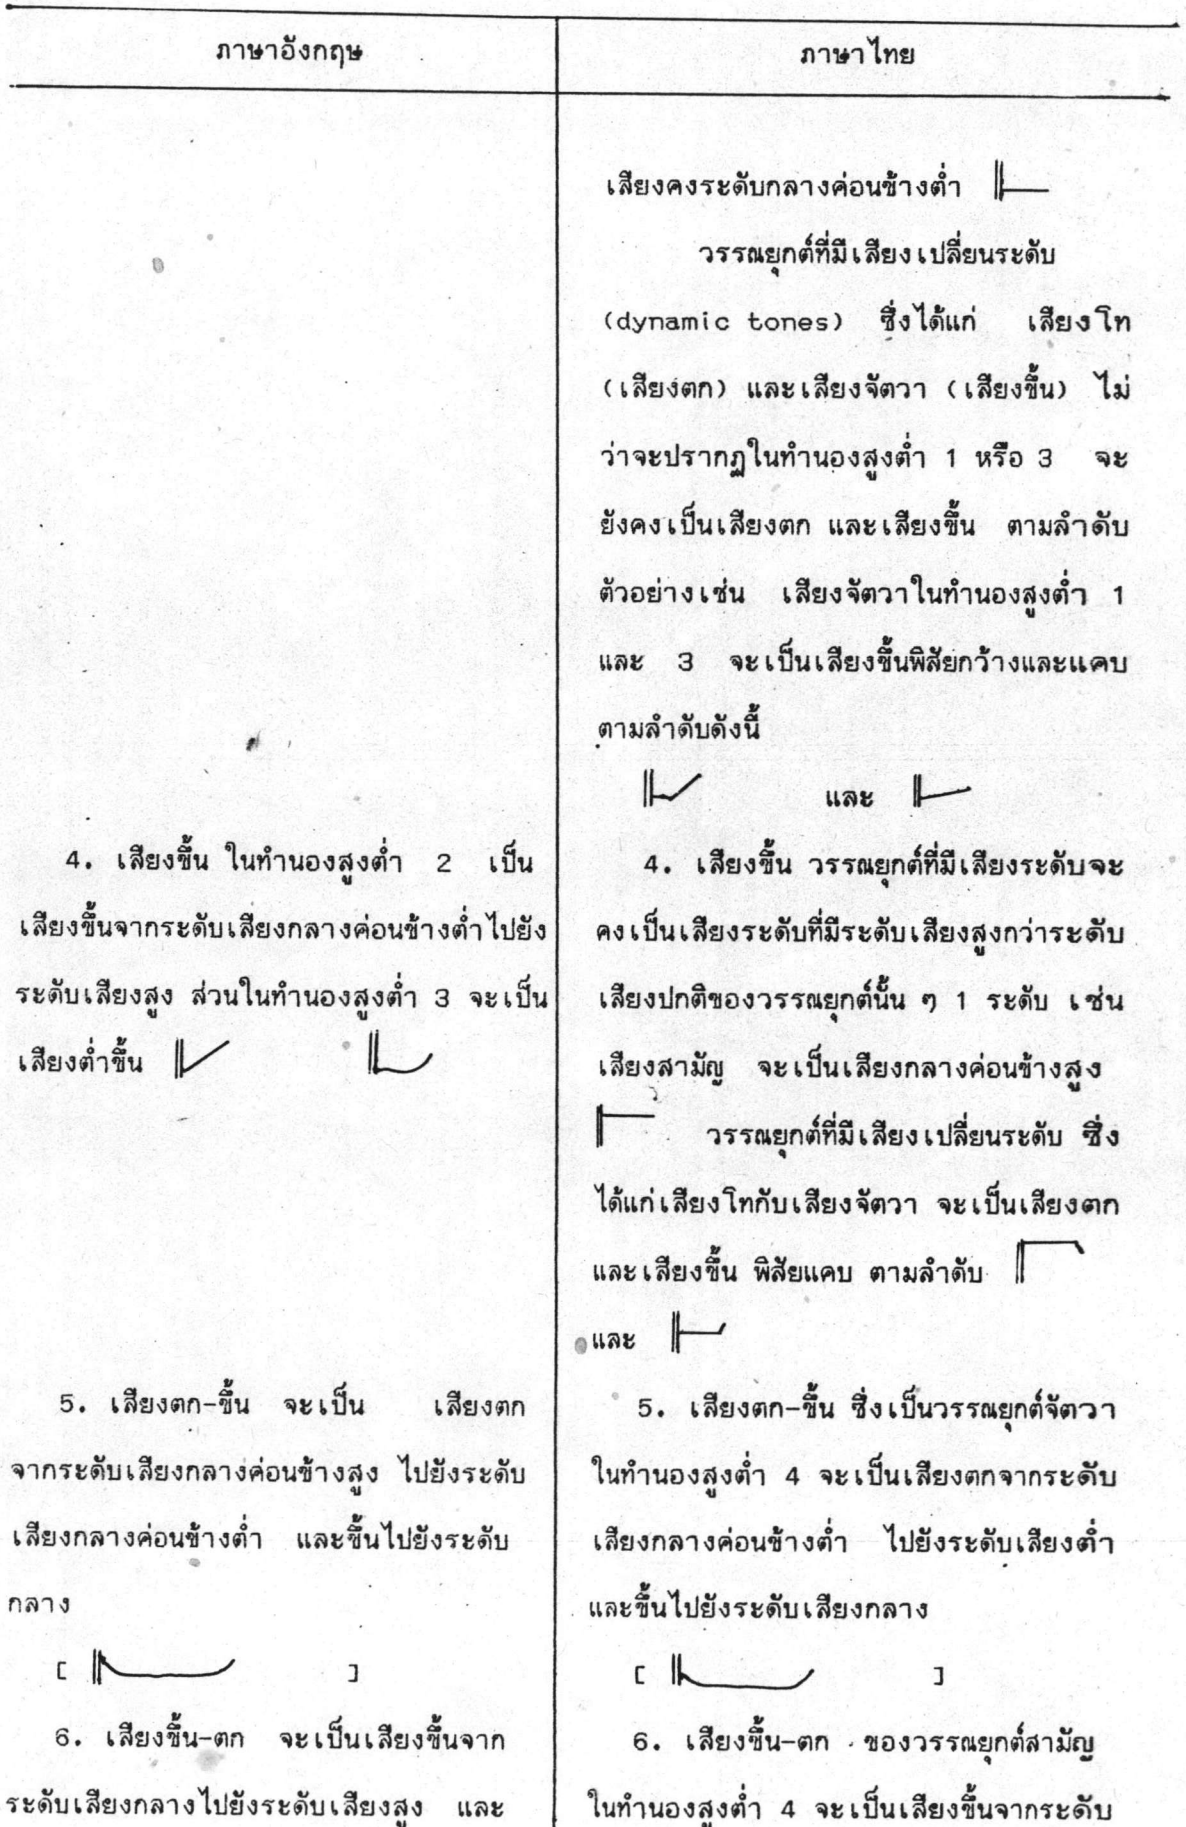 ภาษาอังกฤษ
ภาษาไทย
เสียงคงระดับกลางค่อนข้างต่ำ
วรรณยุกต์ที่มีเสียงเปลี่ยนระดับ
(dynamic tones) ซึ่งได้แก่ เสียงโท
(เสียงตก) และเสียงจัตวา (เสียงขึ้น) ไม่
ว่าจะปรากฏในทำนองสูงต่ำ 1 หรือ 3 จะ
ยังคงเป็นเสียงตก และเสียงขึ้น ตามลำดับ
ตัวอย่างเช่น เสียงจัตวาในทำนองสูงต่ำ 1
และ 3 จะเป็นเสียงขึ้นพิสัยกว้างและแคบ
ตามลำดับดังนี้
และ
4. เสียงขึ้น ในทำนองสูงต่ำ 2 เป็น
เสียงขึ้นจากระดับเสียงกลางค่อนข้างต่ำไปยัง
ระดับเสียงสูง ส่วนในทำนองสูงต่ำ 3 จะเป็น
เสียงต่ำขึ้น
4. เสียงขึ้น วรรณยุกต์ที่มีเสียงระดับจะ
คงเป็นเสียงระดับที่มีระดับเสียงสูงกว่าระดับ
เสียงปกติของวรรณยุกต์นั้น ๆ 1 ระดับ เช่น
เสียงสามัญ จะเป็นเสียงกลางค่อนข้างสูง
วรรณยุกต์ที่มีเสียงเปลี่ยนระดับ ซึ่ง
ได้แก่เสียงโทกับเสียงจัตวา จะเป็นเสียงตก
และเสียงขึ้น พิสัยแคบ ตามลำดับ
และ
5. เสียงตก-ขึ้น จะเป็น เสียงตก
จากระดับเสียงกลางค่อนข้างสูง ไปยังระดับ
เสียงกลางค่อนข้างต่ำ และขึ้นไปยังระดับ
กลาง
[ ]
5. เสียงตก-ขึ้น ซึ่งเป็นวรรณยุกต์จัตวา
ในทำนองสูงต่ำ 4 จะเป็นเสียงตกจากระดับ
เสียงกลางค่อนข้างต่ำ ไปยังระดับเสียงต่ำ
และขึ้นไปยังระดับเสียงกลาง
[ ]
6. เสียงขึ้น-ตก จะเป็นเสียงขึ้นจาก
ระดับเสียงกลางไปยังระดับเสียงสูง และ
6. เสียงขึ้น-ตก ของวรรณยุกต์สามัญ
ในทำนองสูงต่ำ 4 จะเป็นเสียงขึ้นจากระดับ